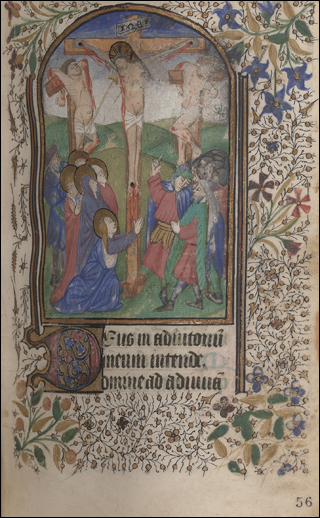 inri
Deus in adiutoriū
meum intende.
Domine ad adiuuā
56